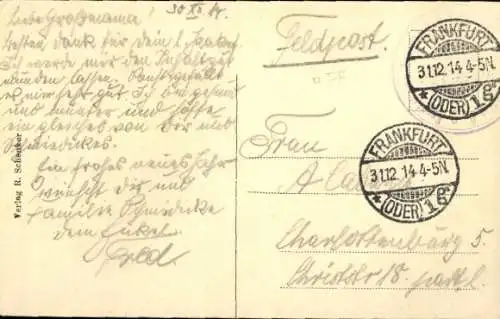 30 XII 14.
Liebe Großmama!
besten Dank für dein l.
Ich werde mir den
lassen.
es mir sehr gut Ich bin gesund
und munter und hoffe
ein gleiches von Dir und
Schmiedickes.
Ein frohes neues Jahr
wünscht dir und
Familie Schmiedicke
dein Enkel
Fred.
Verlag R. Scheurber
Feldpost.
FRANKFURT
31.12.14 4-5N.
* (ODER) 1 g *
FRANKFURT
31.12.14 4-5N.
* (ODER) 1 g *
Frau
A.
Charlottenburg 5.
Christstr 18. part l.